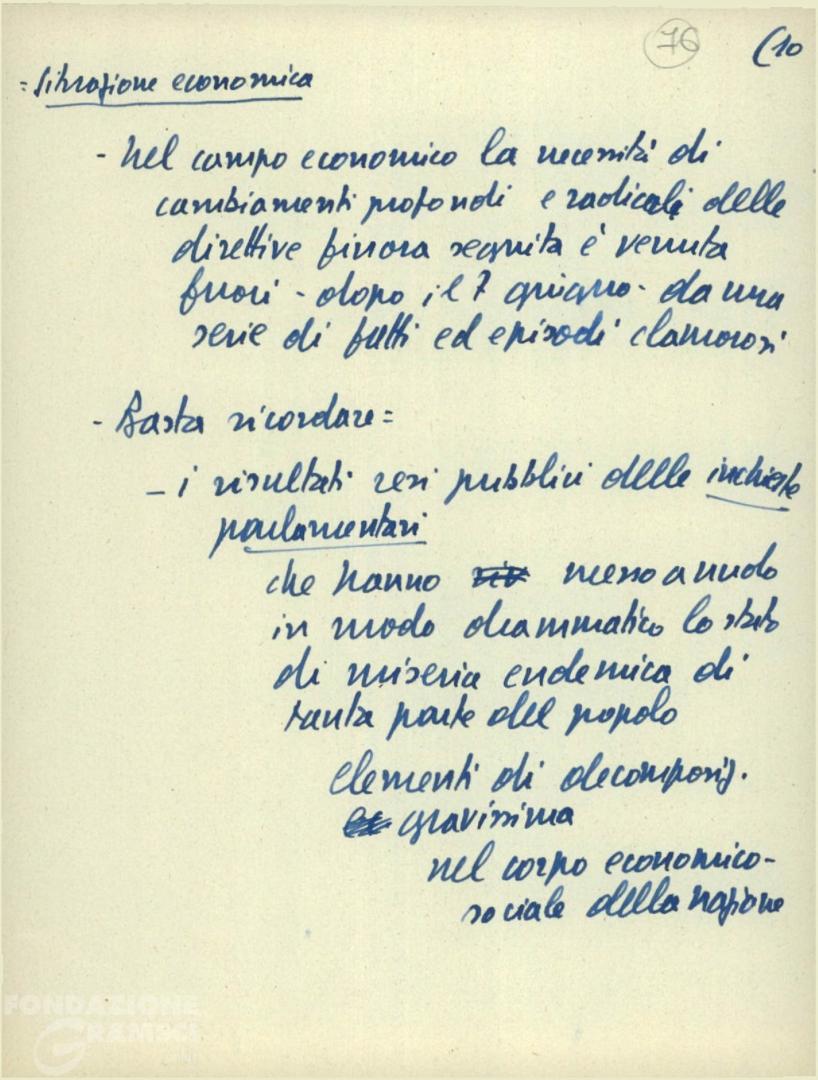 76
(10
= Situazione economica
- Nel campo economico la necessità di
cambiamenti profondi e radicali delle
direttive finora seguita è venuta
fuori - dopo il 7 giugno - da una
serie di fatti ed episodi clamorosi
- Basta ricordare =
- i risultati resi pubblici delle inchieste
parlamentari
che hanno messo a nudo
in modo drammatico lo stato
di miseria endemica di
tanta parte del popolo
elementi di decomposiz.
gravissima
nel corpo economico-
sociale della nazione
FONDAZIONE
GRAMSCI